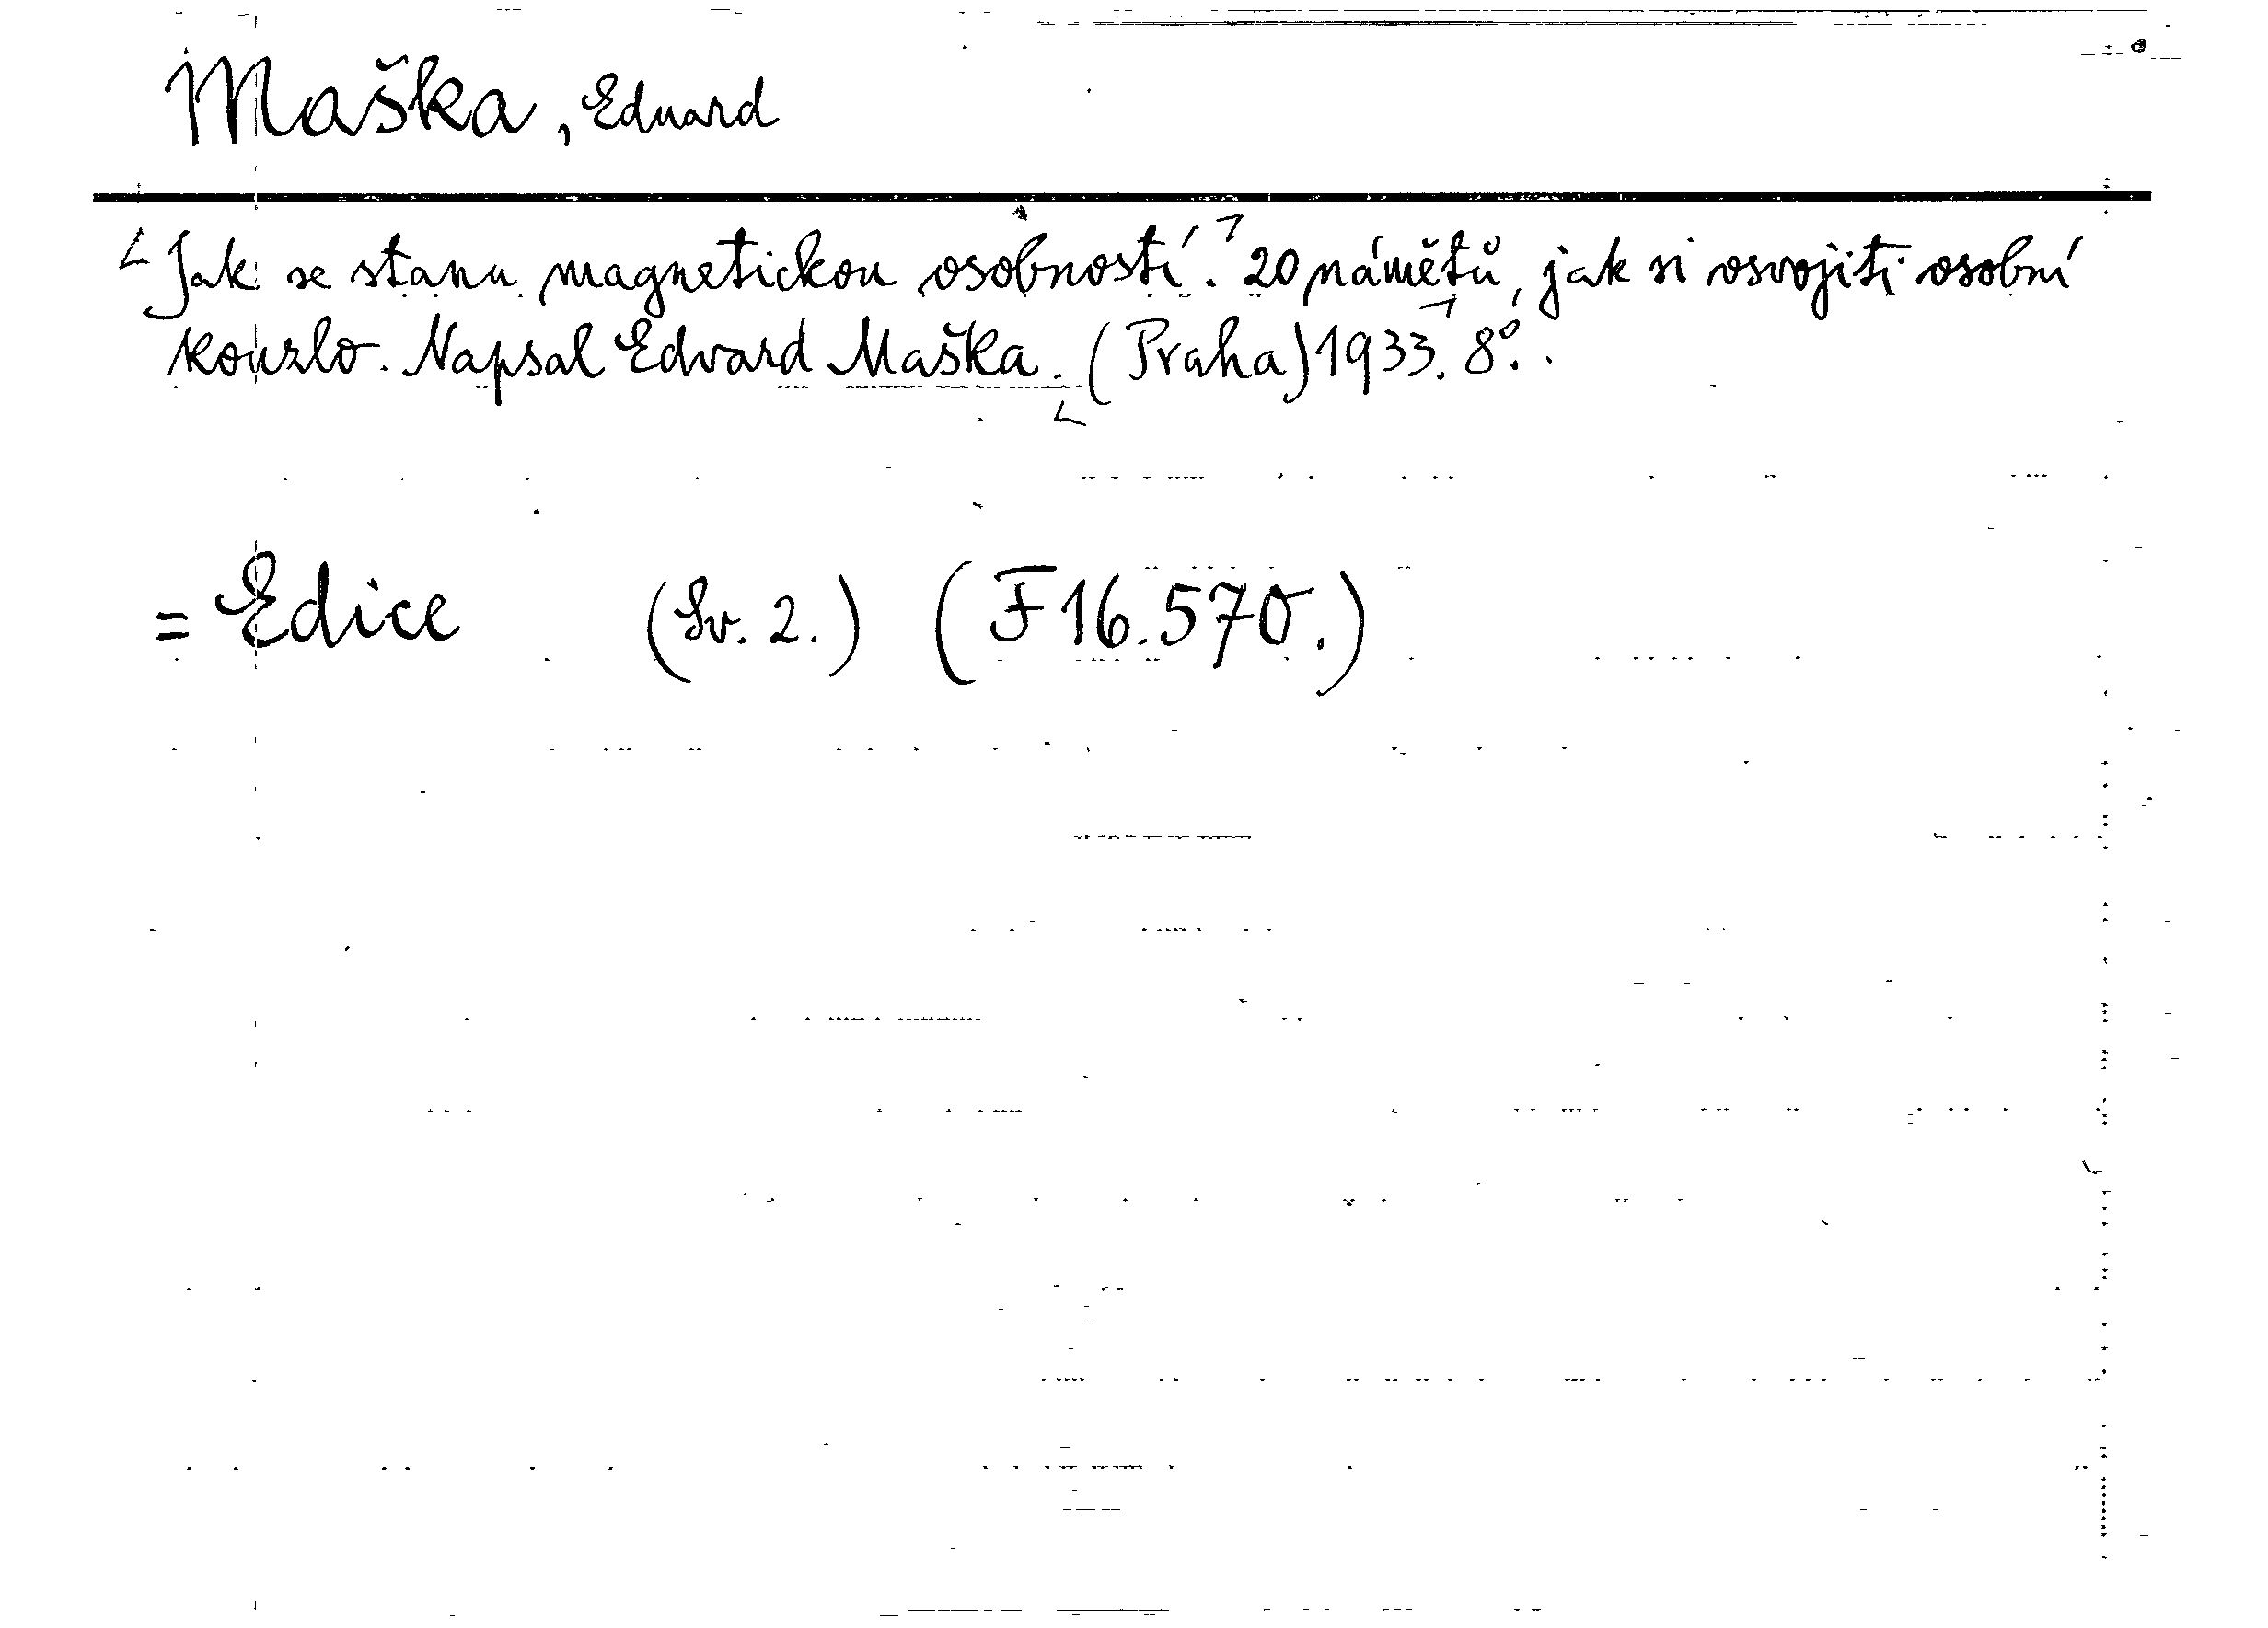 Maška, Eduard
Jak se stanu magnetickou osobností. 20 námětů, jak si osvojiti osobní
kouzlo. Napsal Edvard Maška. (Praha) 1933. 8°.
= Edice (Sv. 2.) (F 16.570.)